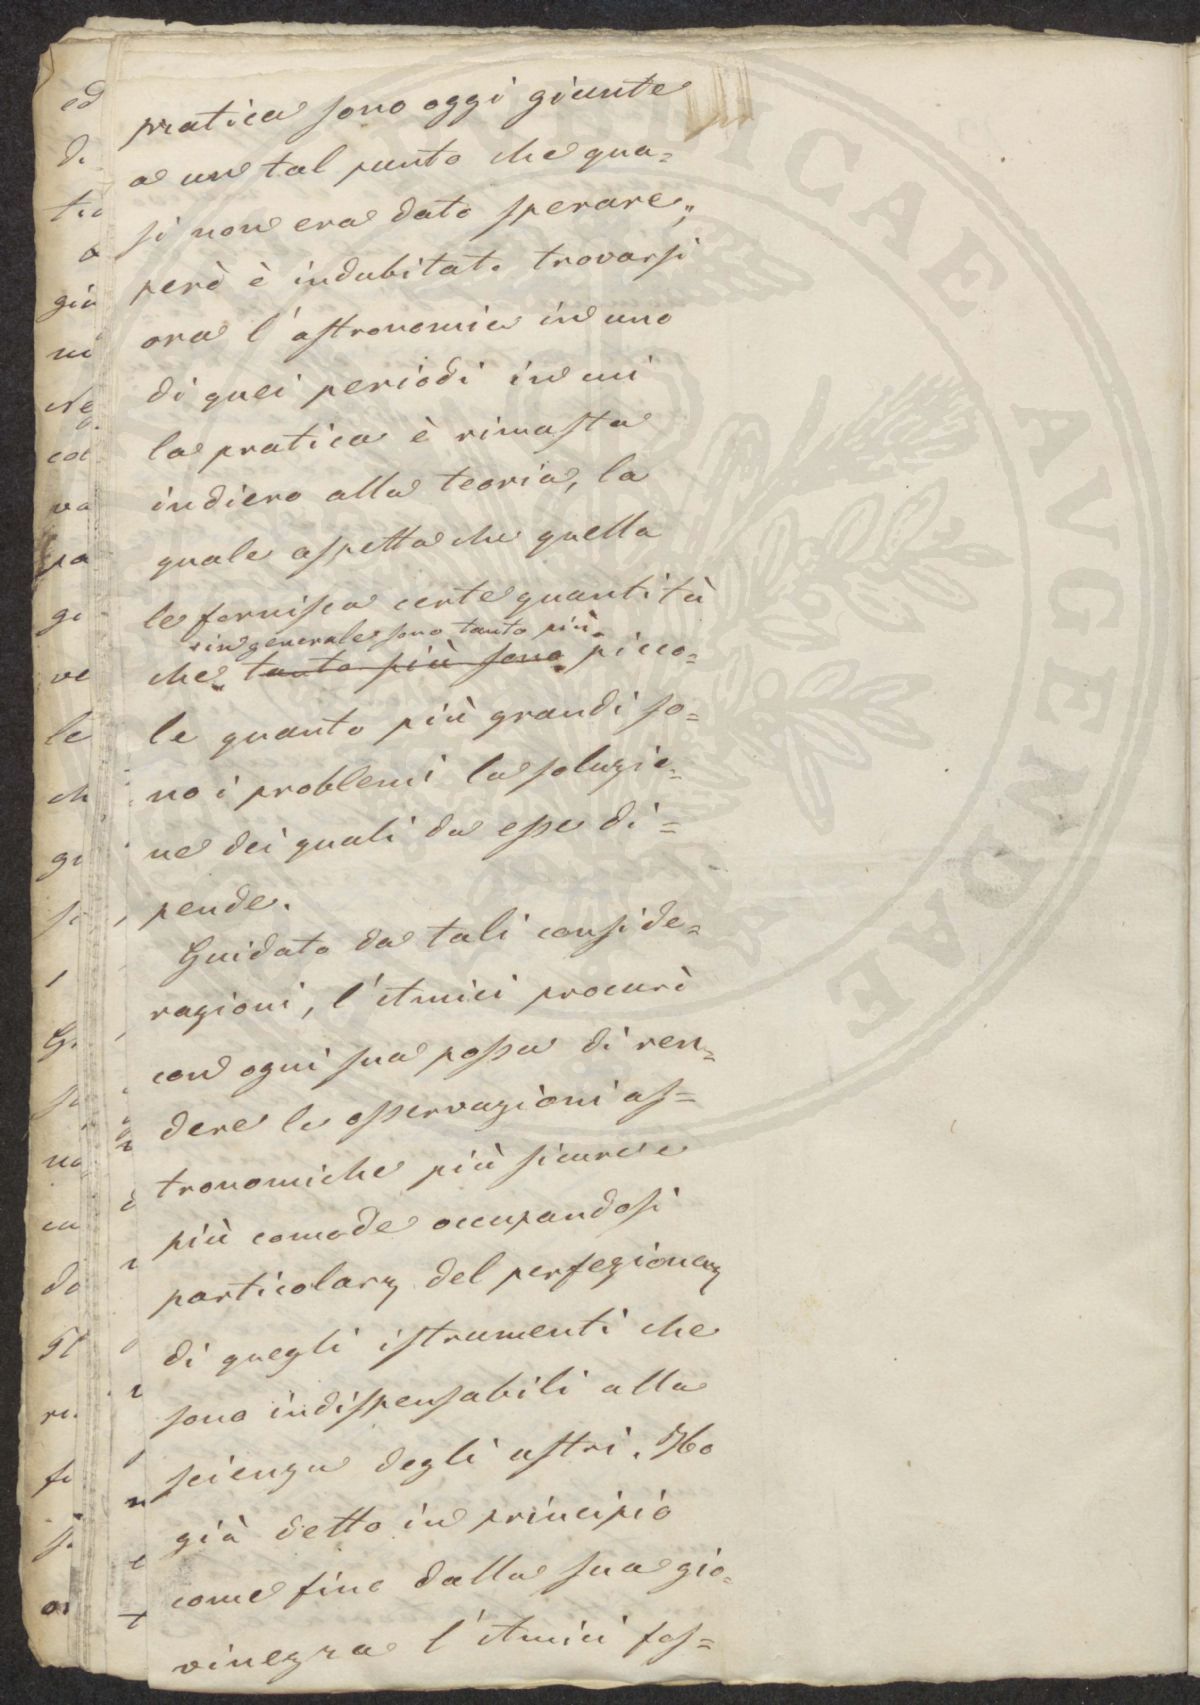 pratica sono oggi giunte
a un tal punto che qua=
si non era dato sperare,,
però è indubitato trovarsi
ora l'astronomia in uno
di quei periodi in cui
la pratica è rimasta
indiero alla teoria, la
quale aspetta che quella
le fornisca certe quantità
in generale sono tanto più
che tanto più sono picco=
le quanto più grandi so=
no i problemi la soluzio=
ne dei quali da esse di=
pende.
Guidato da tali conside=
razioni, l'Amici procurò
con ogni sua possa di ren=
dere le osservazioni as=
tronomiche più sicure e
più comode occupandosi
particolarmente del perfezionamento
di quegli istrumenti che
sono indispensabili alla
scienza degli astri. Ho
già detto in principio
come fino dalla sua gio=
vinezza l'Amici fos=
PVBLICAE AVGENDAE